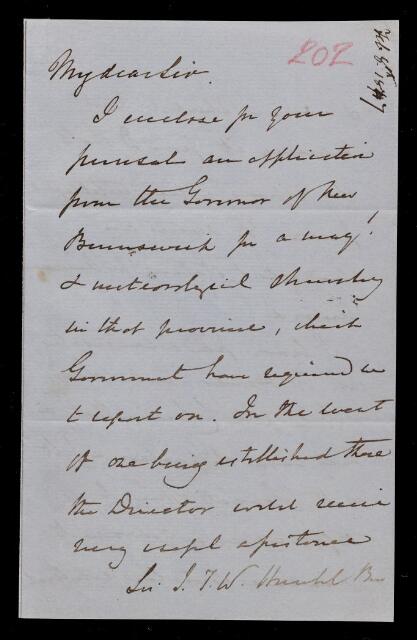 202
Feb 5 1847
My dear Sir
I enclose for your
perusal an application
from the Governor of New
Brunswick for a mag!
& meteorological Observatory
in that province, which
Government have required us
to report on. In the event
of one being established there
the Director would receive
very useful assistance
Sir J. F. W. Herschel Bar